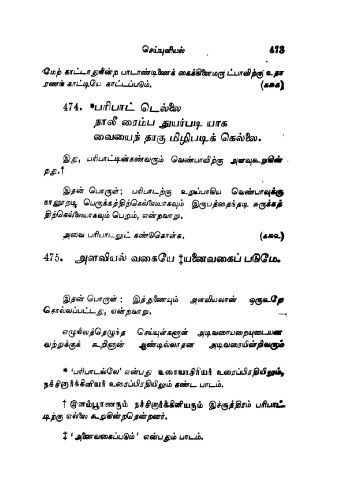 செய்யுளியல் 473
மேற் காட்டாதுகின்ற பாடாண்டிணைக் கைக்கிளைமரூ ட்பாவிற்கு உதா
ரணங் காட்டியே காட்டப்படும்.
474. *பரிபாட் டெல்லை
நாலீ ரைம்ப துயர்படி யாக
வையைந் தாகு மிழிபடிக் கெல்லை.
இது, பரிபாட்டின்கண்வரும் வெண்பாவிற்கு அளவுகூறுகின்
றது.†
இதன் பொருள்: பரிபாடற்கு உறுப்பாகிய வெண்பாவுக்கு
நானூறடி பெருக்கத்திற்கெல்லையாகவும் இருபத்தைந்தடி சுருக்கத்
திற்கெல்லையாகவும் பெறும், என்றவாறு.
அவை பரிபாடலுட் கண்டுகொள்க.
475. அளவியல் வகையே ‡யனைவகைப் படுமே.
இதன் பொருள்: இத்துணையும் அளவியலான் ஒருகூறே
சொல்லப்பட்டது, என்றவாறு.
எழுநிலத்தெழுந்த செய்யுள்களுள் அடிவரையறையுடையன
வற்றுக்குக் கூறினான் ஆண்டில்லாதன அடிவரையின்றிவரும்
* 'பரிபாடல்லே' என்பது உரையாசிரியர் உரைப்பிரதியிலும்,
நச்சினார்க்கினியர் உரைப்பிரதியிலும் கண்ட பாடம்.
† இளம்பூரணரும் நச்சினார்க்கினியரும் இச்சூத்திரம் பரிபாட்
டிற்கு எல்லை கூறுகின்றதென்றனர்.
‡ 'அனைவகைப்படும்' என்பதும் பாடம்.